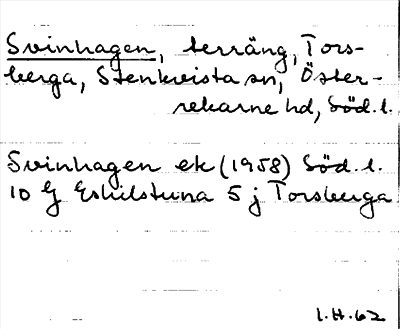 Svinhagen, terräng, Tors-
berga, Stenkvista sn, Öster-
rekarne hd, Söd. l.
Svinhagen ek (1958) Söd. l.
10 G Eskilstuna 5 j Torsberga
I.H.62